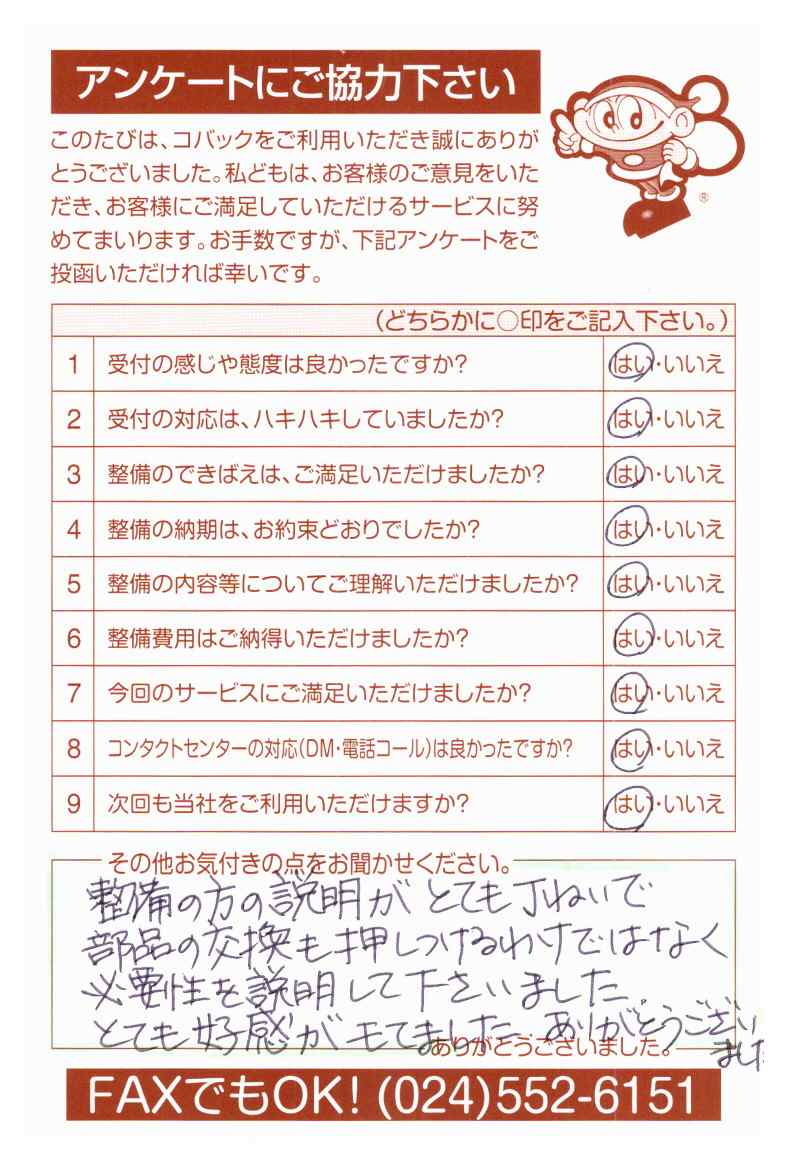 アンケートにご協力下さい
このたびは、コバックをご利用いただき誠にありが
とうございました。私どもは、お客様のご意見をいた
だき、お客様にご満足していただけるサービスに努
めてまいります。お手数ですが、下記アンケートをご
投函いただければ幸いです。
®
(どちらかに○印をご記入下さい。)
1 受付の感じや態度は良かったですか? はい・いいえ
2 受付の対応は、ハキハキしていましたか? はい・いいえ
3 整備のできばえは、ご満足いただけましたか? はい・いいえ
4 整備の納期は、お約束どおりでしたか? はい・いいえ
5 整備の内容等についてご理解いただけましたか? はい・いいえ
6 整備費用はご納得いただけましたか? はい・いいえ
7 今回のサービスにご満足いただけましたか? はい・いいえ
8 コンタクトセンターの対応(DM・電話コール)は良かったですか? はい・いいえ
9 次回も当社をご利用いただけますか? はい・いいえ
その他お気付きの点をお聞かせください。
整備の方の説明がとても丁ねいで
部品の交換も押しつけるわけではなく
必要性を説明して下さいました。
とても好感がモてました。ありがとうござい
ました
ありがとうございました。
FAXでもOK! (024)552-6151